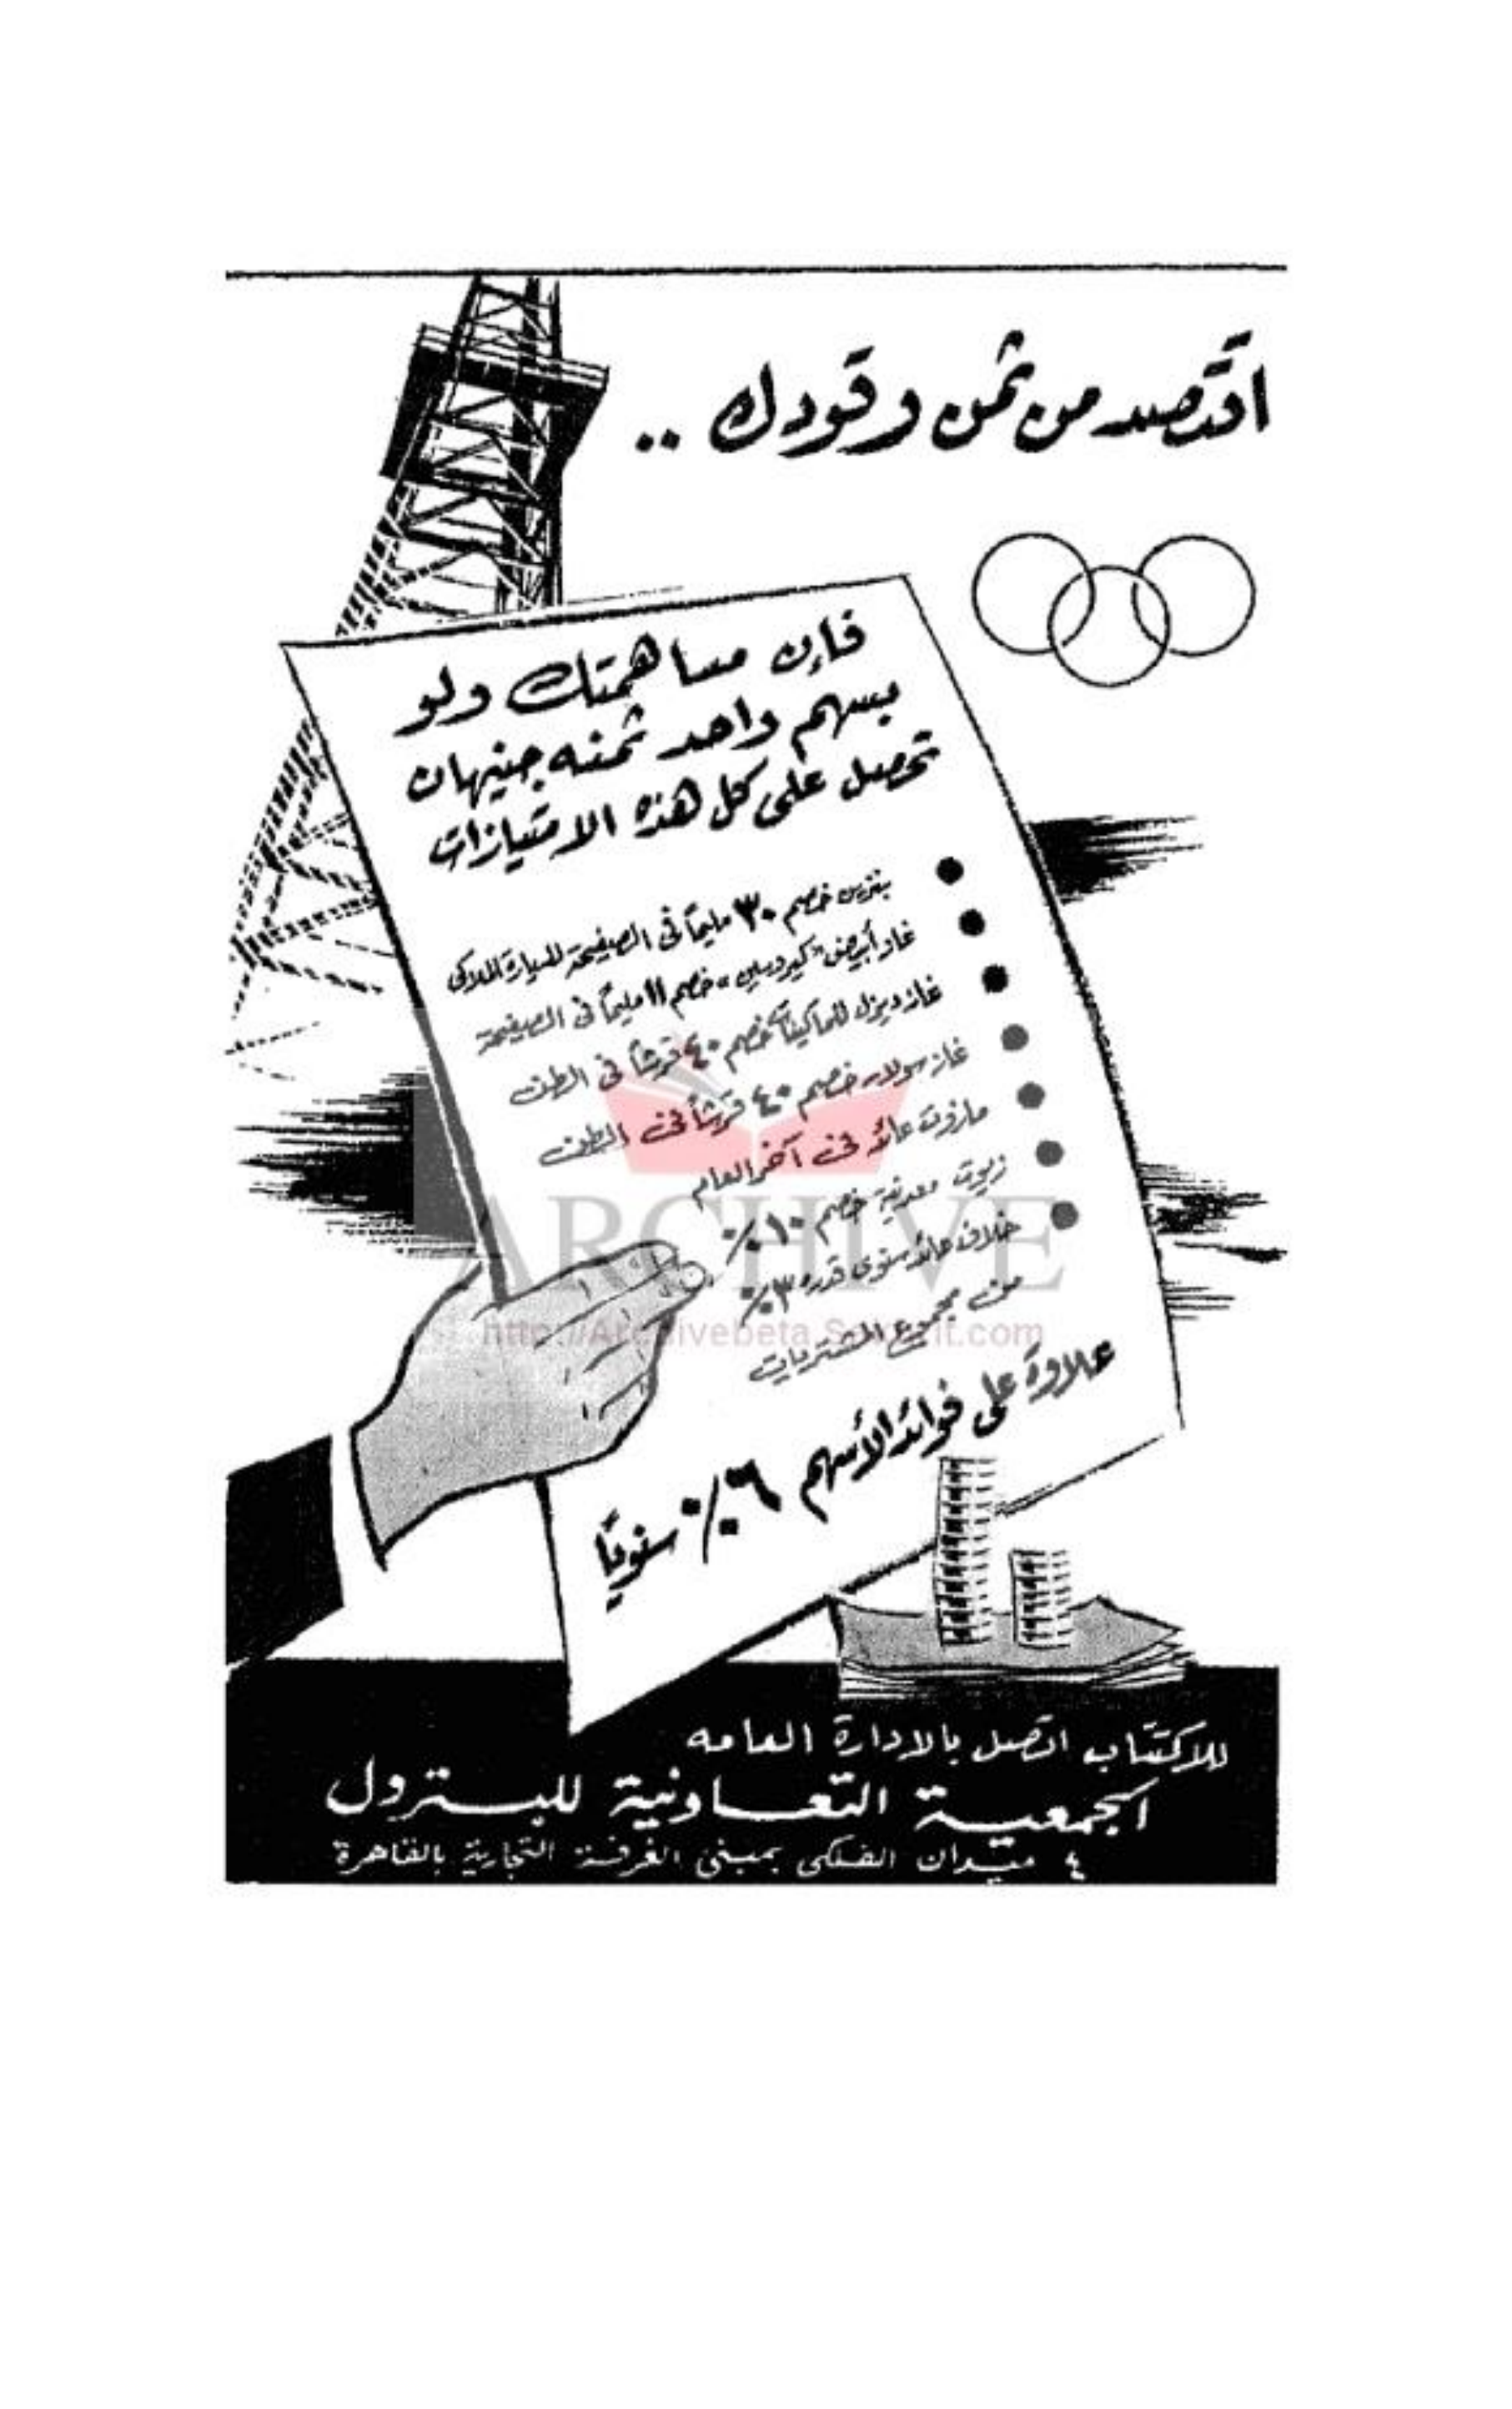 اقتصد من ثمن وقودك ..
فإن مساهمتك ولو
بسهم واحد ثمنه جنيهان
تحصل على كل هذه الامتيازات
بنزين خصم ٣٠ مليماً فى الصفيحة للسيارة الملاكى
غاز أبيض "كيروسين" خصم ١١ مليماً فى الصفيحة
غاز ديزل للماكينات خصم ٤٠ قرشاً فى الطن
غاز سولار خصم ٤٠ قرشاً فى الطن
مازوت عائد فى آخر العام
زيوت معدنية خصم ١٠٪
خلاف عائد سنوى قدره ٣٪
من مجموع المشتريات
علاوة على فوائد الأسهم ٦٪ سنوياً
ARCHIVE
http://Archivebeta.Sakhrit.com
للاكتتاب اتصل بالادارة العامه
الجمعية التعاونية للبترول
٤ ميدان الفلكى بمبنى الغرفة التجارية بالقاهرة